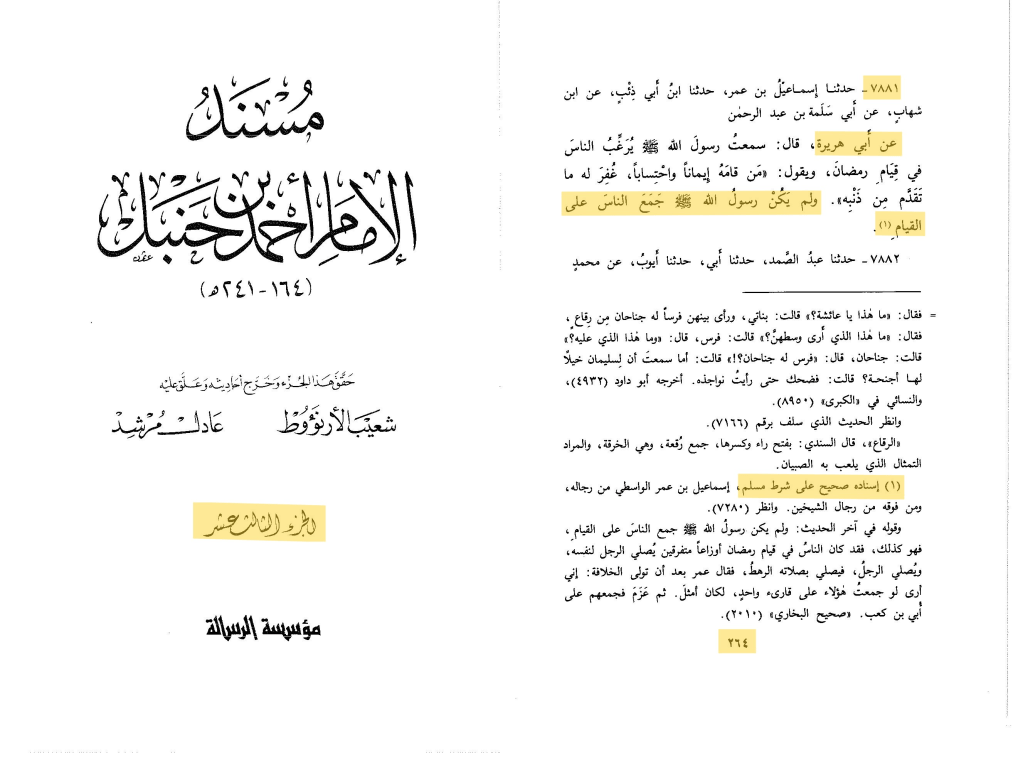 مُسْنَدُ
الإمَامِ أَحْمَد بن حَنْبَل
(١٦٤ - ٢٤١ هـ)
حَقَّقَ هَذا الجُزْء وَخَرَّجَ أحَاديثه وَعَلَّقَ عَليْه
شعَيْب الأرنؤوط عَادل مُرْشِد
الجزء الثالث عشر
مؤسسة الرسالة
٧٨٨١ - حدثنا إسماعيلُ بن عمر، حدثنا ابنُ أبي ذِئْبٍ، عن ابن
شهابٍ، عن أبي سَلَمة بن عبد الرحمٰن
عن أبي هريرة، قال: سمعتُ رسولَ الله ﷺ يُرَغِّبُ الناسَ
في قِيَامِ رمضانَ، ويقول: «مَن قامَهُ إيماناً واحْتِساباً، غُفِرَ له ما
تَقَدَّم مِن ذَنْبِه». ولم يَكُنْ رسولُ الله ﷺ جَمَعَ الناسَ على
القيامِ (١).
٧٨٨٢ - حدثنا عبدُ الصَّمد، حدثنا أبي، حدثنا أيوبُ، عن محمدٍ
= فقال: «ما هٰذا يا عائشة؟» قالت: بناتي، ورأى بينهن فرساً له جناحان مِن رِقاعٍ،
فقال: «ما هٰذا الذي أرى وسطهنَّ؟» قالت: فرس، قال: «وما هٰذا الذي عليه؟»
قالت: جناحان، قال: «فرس له جناحان؟!» قالت: أما سمعتَ أن لِسليمان خيلًا
لهـا أجنحـة؟ قالت: فضحك حتى رأيتُ نواجذه. أخرجه أبو داود (٤٩٣٢)،
والنسائي في «الكبرى» (٨٩٥٠).
وانظر الحديث الذي سلف برقم (٧١٦٦).
«الرقاع»، قال السندي: بفتح راء وكسرها، جمع رُقعة، وهي الخرقة، والمراد
التمثال الذي يلعب به الصبيان.
(١) إسناده صحيح على شرط مسلم، إسماعيل بن عمر الواسطي من رجاله،
ومن فوقه من رجال الشيخين. وانظر (٧٢٨٠).
وقوله في آخر الحديث: ولم يكن رسولُ الله ﷺ جمع الناسَ على القيام،
فهو كذلك، فقد كان الناسُ في قيام رمضان أوزاعاً متفرقين يُصلي الرجل لنفسه،
ويُصلي الرجلُ، فيصلي بصلاته الرهطُ، فقال عمر بعد أن تولى الخلافة: إني
أرى لو جمعتُ هٰؤلاء على قارىء واحدٍ، لكان أمثلَ. ثم عَزَمَ فجمعهم على
أُبي بن كعب. «صحيح البخاري» (٢٠١٠).
٢٦٤